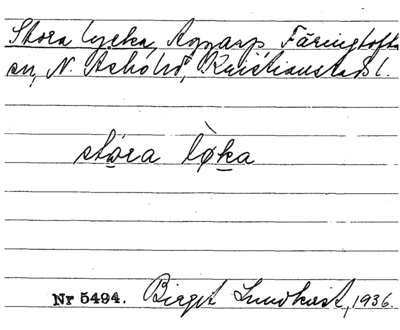 Stora lycka, Aggarp, Färingtofta
sn, N. Åsbohd, Kristianstads l.
stora lø̀ka
Nr 5494. Birgit Lundkvist, 1936.